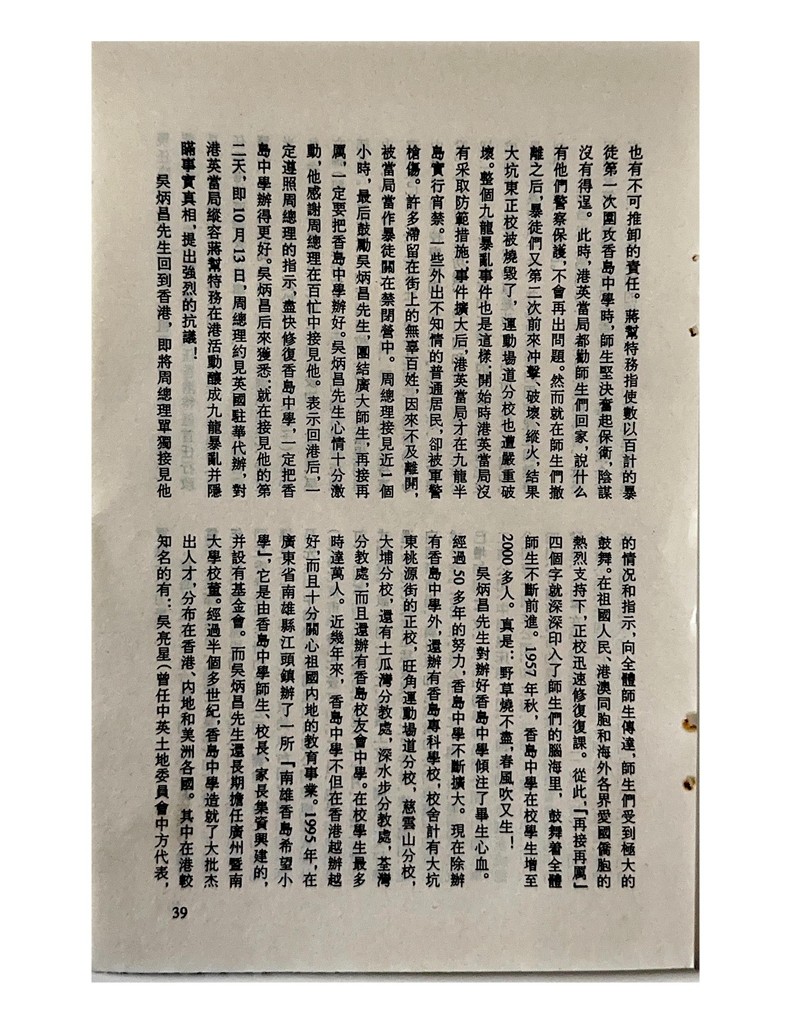 也有不可推卸的責任。蔣幫特務指使數以百計的暴
徒第一次圍攻香島中學時，師生堅決奮起保衛，陰謀
沒有得逞。此時，港英當局都勸師生們回家，說什么
有他們警察保護，不會再出問題。然而就在師生們撤
離之后，暴徒們又第二次前來冲擊、破壞、縱火，結果
大坑東正校被燒毀了，運動場道分校也遭嚴重破
壞。整個九龍暴亂事件也是這樣：開始時港英當局沒
有采取防範措施；事件擴大后，港英當局才在九龍半
島實行宵禁。一些外出不知情的普通居民，卻被軍警
槍傷。許多滯留在街上的無辜百姓，因來不及離開，
被當局當作暴徒關在禁閉營中。周總理接見近1個
小時，最后鼓勵吳炳昌先生，團結廣大師生，再接再
厲，一定要把香島中學辦好。吳炳昌先生心情十分激
動，他感謝周總理在百忙中接見他。表示回港后，一
定遵照周總理的指示，盡快修復香島中學，一定把香
島中學辦得更好。吳炳昌后來獲悉：就在接見他的第
二天，即10月13日，周總理約見英國駐華代辦，對
港英當局縱容蔣幫特務在港活動釀成九龍暴亂并隱
瞞事實真相，提出強烈的抗議！
吳炳昌先生回到香港，即將周總理單獨接見他
的情况和指示，向全體師生傳達，師生們受到極大的
鼓舞。在祖國人民、港澳同胞和海外各界愛國僑胞的
熱烈支持下，正校迅速修復復課。從此，「再接再厲」
四個字就深深印入了師生們的腦海里，鼓舞着全體
師生不斷前進。1957年秋，香島中學在校學生增至
2000多人。真是：野草燒不盡，春風吹又生！
吳炳昌先生對辦好香島中學傾注了畢生心血。
經過50多年的努力，香島中學不斷擴大。現在除辦
有香島中學外，還辦有香島專科學校，校舍計有大坑
東桃源街的正校，旺角運動場道分校，慈雲山分校，
大埔分校，還有土瓜灣分教處，深水步分教處，荃灣
分教處，而且還辦有香島校友會中學。在校學生最多
時達萬人。近幾年來，香島中學不但在香港越辦越
好，而且十分關心祖國內地的教育事業。1995年，在
廣東省南雄縣江頭鎮辦了一所「南雄香島希望小
學」，它是由香島中學師生、校長、家長集資興建的，
并設有基金會。而吳炳昌先生還長期擔任廣州暨南
大學校董。經過半個多世紀，香島中學造就了大批杰
出人才，分布在香港、內地和美洲各國。其中在港較
知名的有：吳亮星（曾任中英土地委員會中方代表，
39